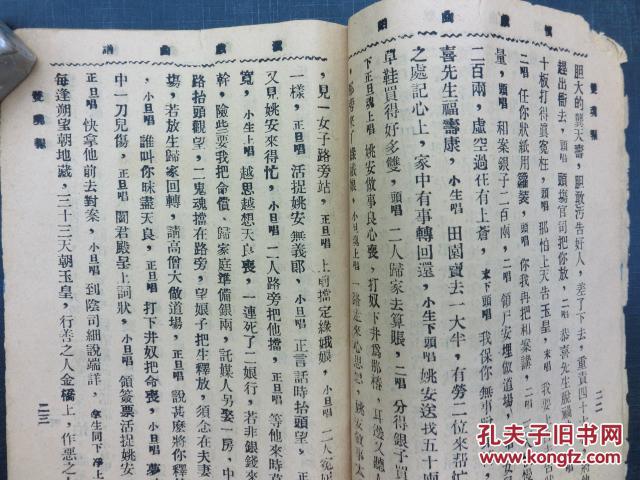 雙魂報
膽大的龔天壽，膽敢汚告好人，差了下去，重責四十
趕出衙去，頭唱 頭塲官司把你放，二唱 恭喜先生
十板打得眞寃枉，頭唱 那怕上天告玉皇，末唱 我要
二唱 任你狀紙用籮裝，頭唱 你我再把和案講，二唱
量，頭唱 和案銀子二百兩，二唱 領尸安埋做道場，
二百兩，虛空過往有上蒼，末下頭唱 我保你無事
喜先生福壽康，小生唱 田園賣去一大半，有勞二位來帮忙
之處記心上，家中有事轉回還，小生下頭唱 姚安送我五十兩
草鞋買得好多雙，頭唱 二人歸家去算賬，二唱 分得銀子買
下正旦魂上唱 姚安做事良心喪，打奴下井爲那樁，耳邊又聽人
小旦魂上唱 一路走來心思想，姚安做事太
漢戲曲譜
，見一女子路旁站，正旦唱 上前擋定綠娥娘，小旦唱 二人寃
一樣，正旦唱 活捉姚安無義郎，小旦唱 正言話時抬頭望，
又見姚安來得忙，小旦唱 二人路旁把他擋，正旦唱 等他來時
寬，小生上唱 越思越想天良喪，一連死了二娘行，若非銀錢來
幹，險些要我把命償，歸家庭準備銀兩，託媒人另娶一房，中
路抬頭觀望，二鬼魂擋在路旁，望娘子把生釋放，須念在夫妻
塲，若放生歸家回轉，請高僧大做道塲，正旦唱 說甚麽將你釋
，小旦唱 誰叫你昧盡天良，正旦唱 打下井奴把命喪，小旦唱 夢
中一刀兒傷，正旦唱 閻君殿呈上詞狀，小旦唱 領簽票活捉姚安
正旦唱 快拿他前去對案，小旦唱 到陰司細說端詳，拿生同下淨上
每逢朔望朝地藏，三十三天朝玉皇，行善之人金橋上，作惡之
雙魂報
二三